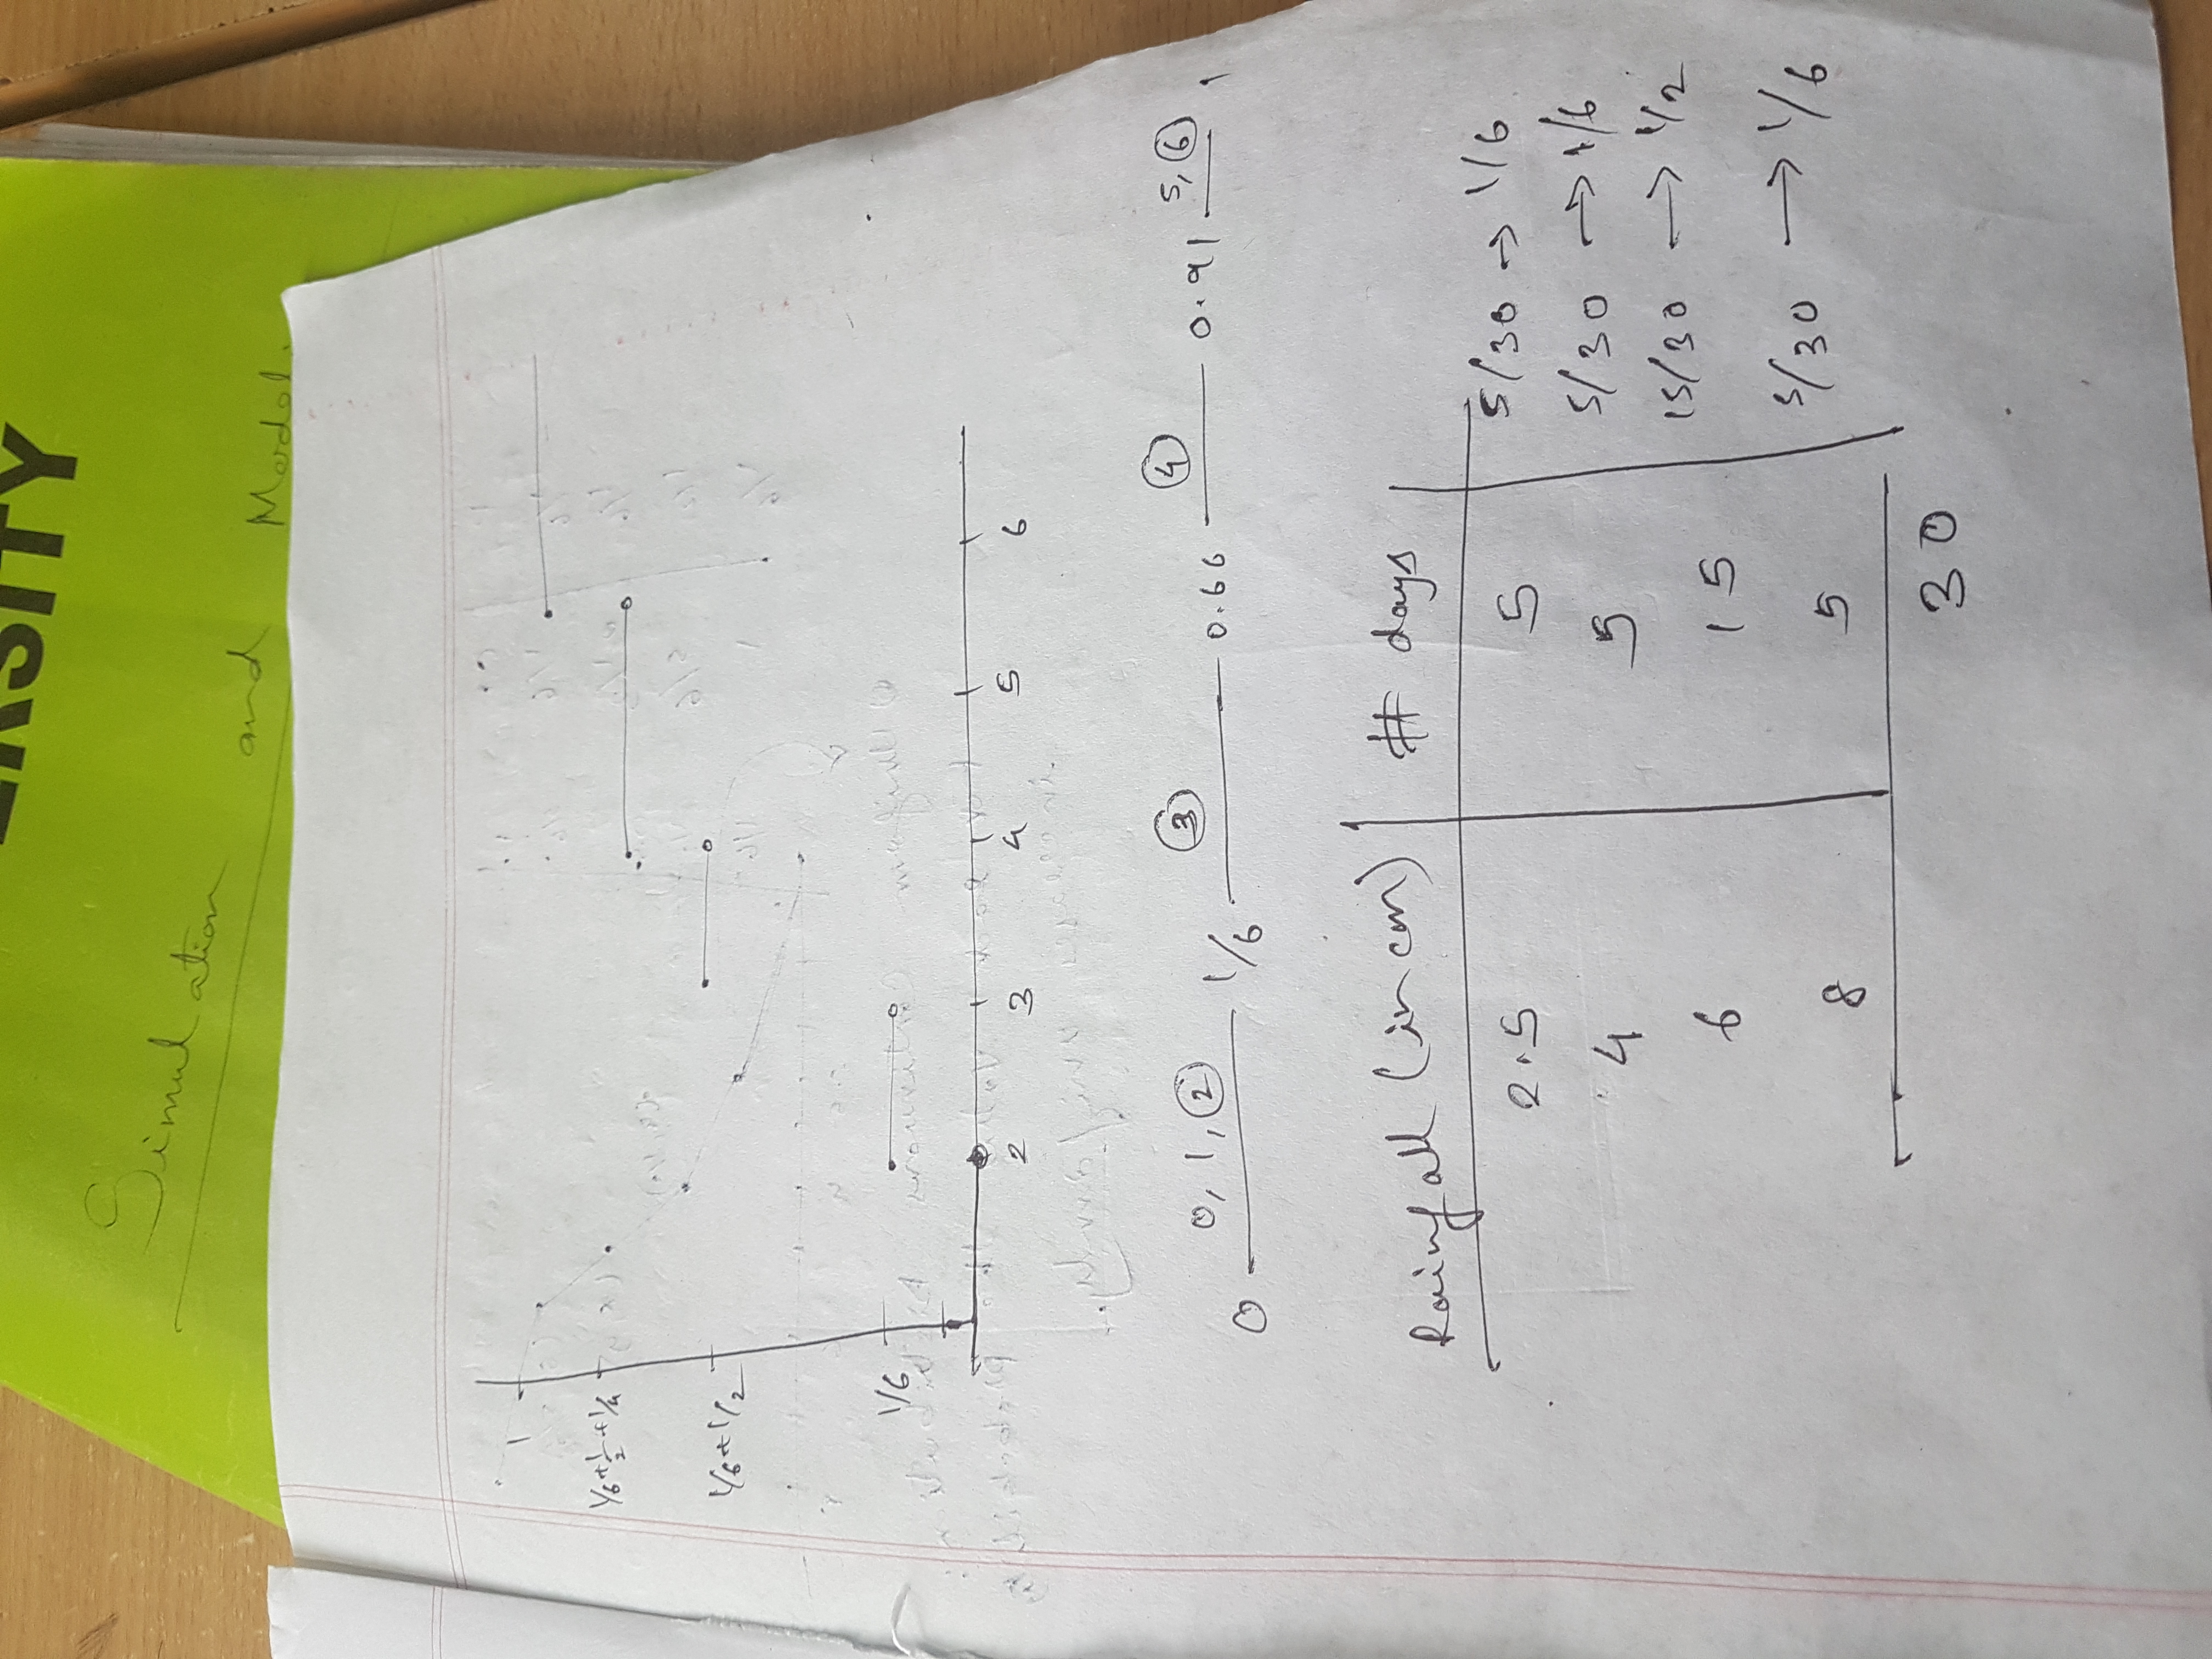 ERSITY
Simulation and Model
1
1/6+1/2+1/4
1/6+1/2
1/6
2 3 4 5 6
0 0, 1, 2 1/6 3 0.66 4 0.91 5, 6 1
Rainfall (in cm) # days
2.5 5 5/30 → 1/6
4 5 5/30 → 1/6
6 15 15/30 → 1/2
8 5 5/30 → 1/6
30